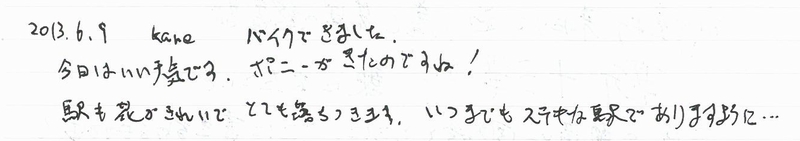 2013.6.9 kane バイクできました。
今日はいい天気です。ポニーがきたのですね！
駅も花がきれいでとても落ちつきます。いつまでもステキな駅でありますように…